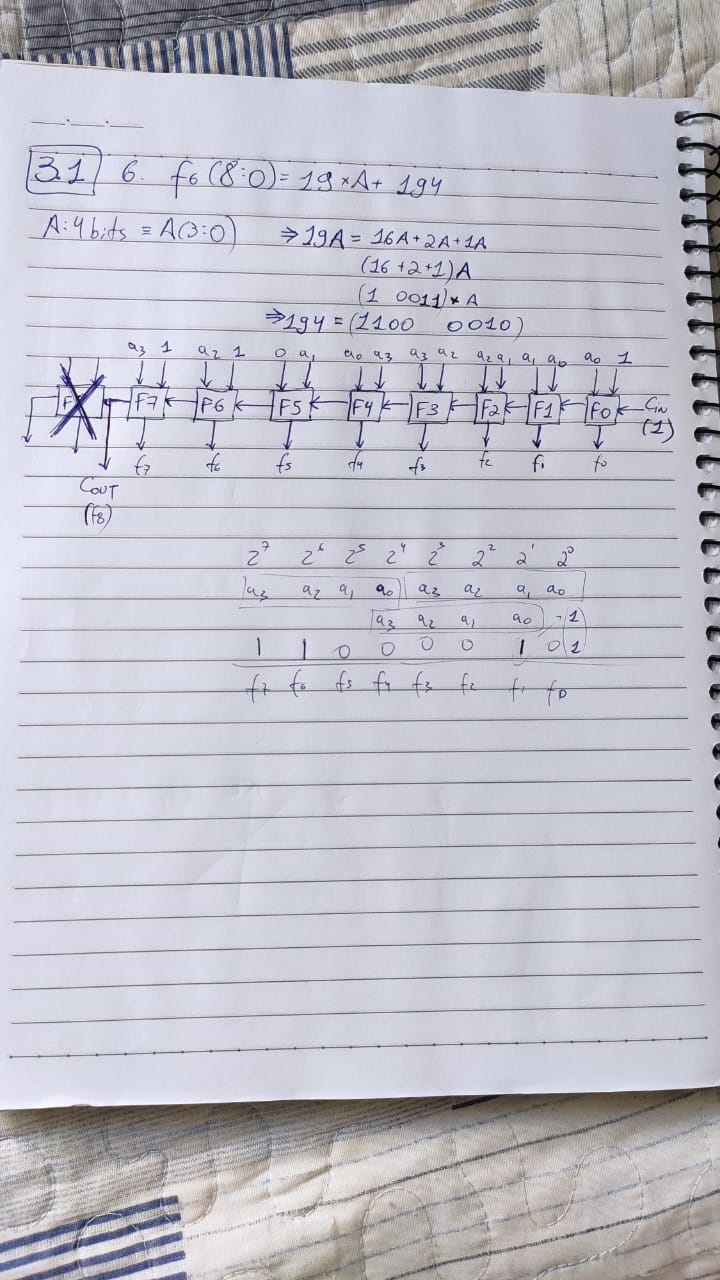 3.1 6. f6 (8:0) = 19 × A + 194
A: 4 bits ≡ A(3:0) ⇒ 19A = 16A + 2A + 1A
(16 + 2 + 1) A
(1 0011) × A
⇒ 194 = (1100 0010)
a3 1 a2 1 0 a1 a0 a3 a3 a2 a2 a1 a1 a0 a0 1
F7 F6 F5 F4 F3 F2 F1 F0 Cin
(1)
f7 f6 f5 f4 f3 f2 f1 f0
COUT
(f8)
2^7 2^6 2^5 2^4 2^3 2^2 2^1 2^0
a3 a2 a1 a0 a3 a2 a1 a0
a3 a2 a1 a0 1
1 1 0 0 0 0 1 0 1
f7 f6 f5 f4 f3 f2 f1 f0